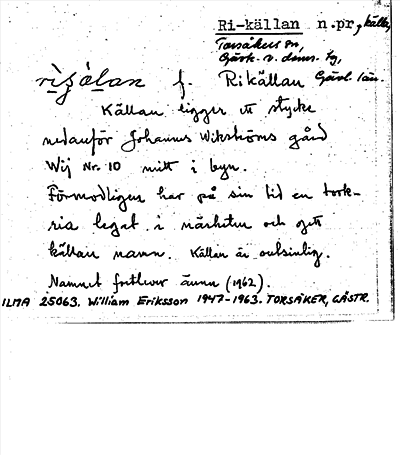 Ri-källan n.pr., källa,
Torsåkers sn,
Gästr. ö. doms. hg,
f. Rikällan Gävl. län.
Källan ligger ett stycke
nedanför Johannes Wikströms gård
Wij Nr. 10 mitt i byn.
Förmodligen har på sin tid en tork-
ria legat i närheten och gett
källan namn. Källan är outsinlig.
Namnet fortlever ännu (1962).
ILMA 25063. William Eriksson 1947-1963. TORSÅKER, GÄSTR.